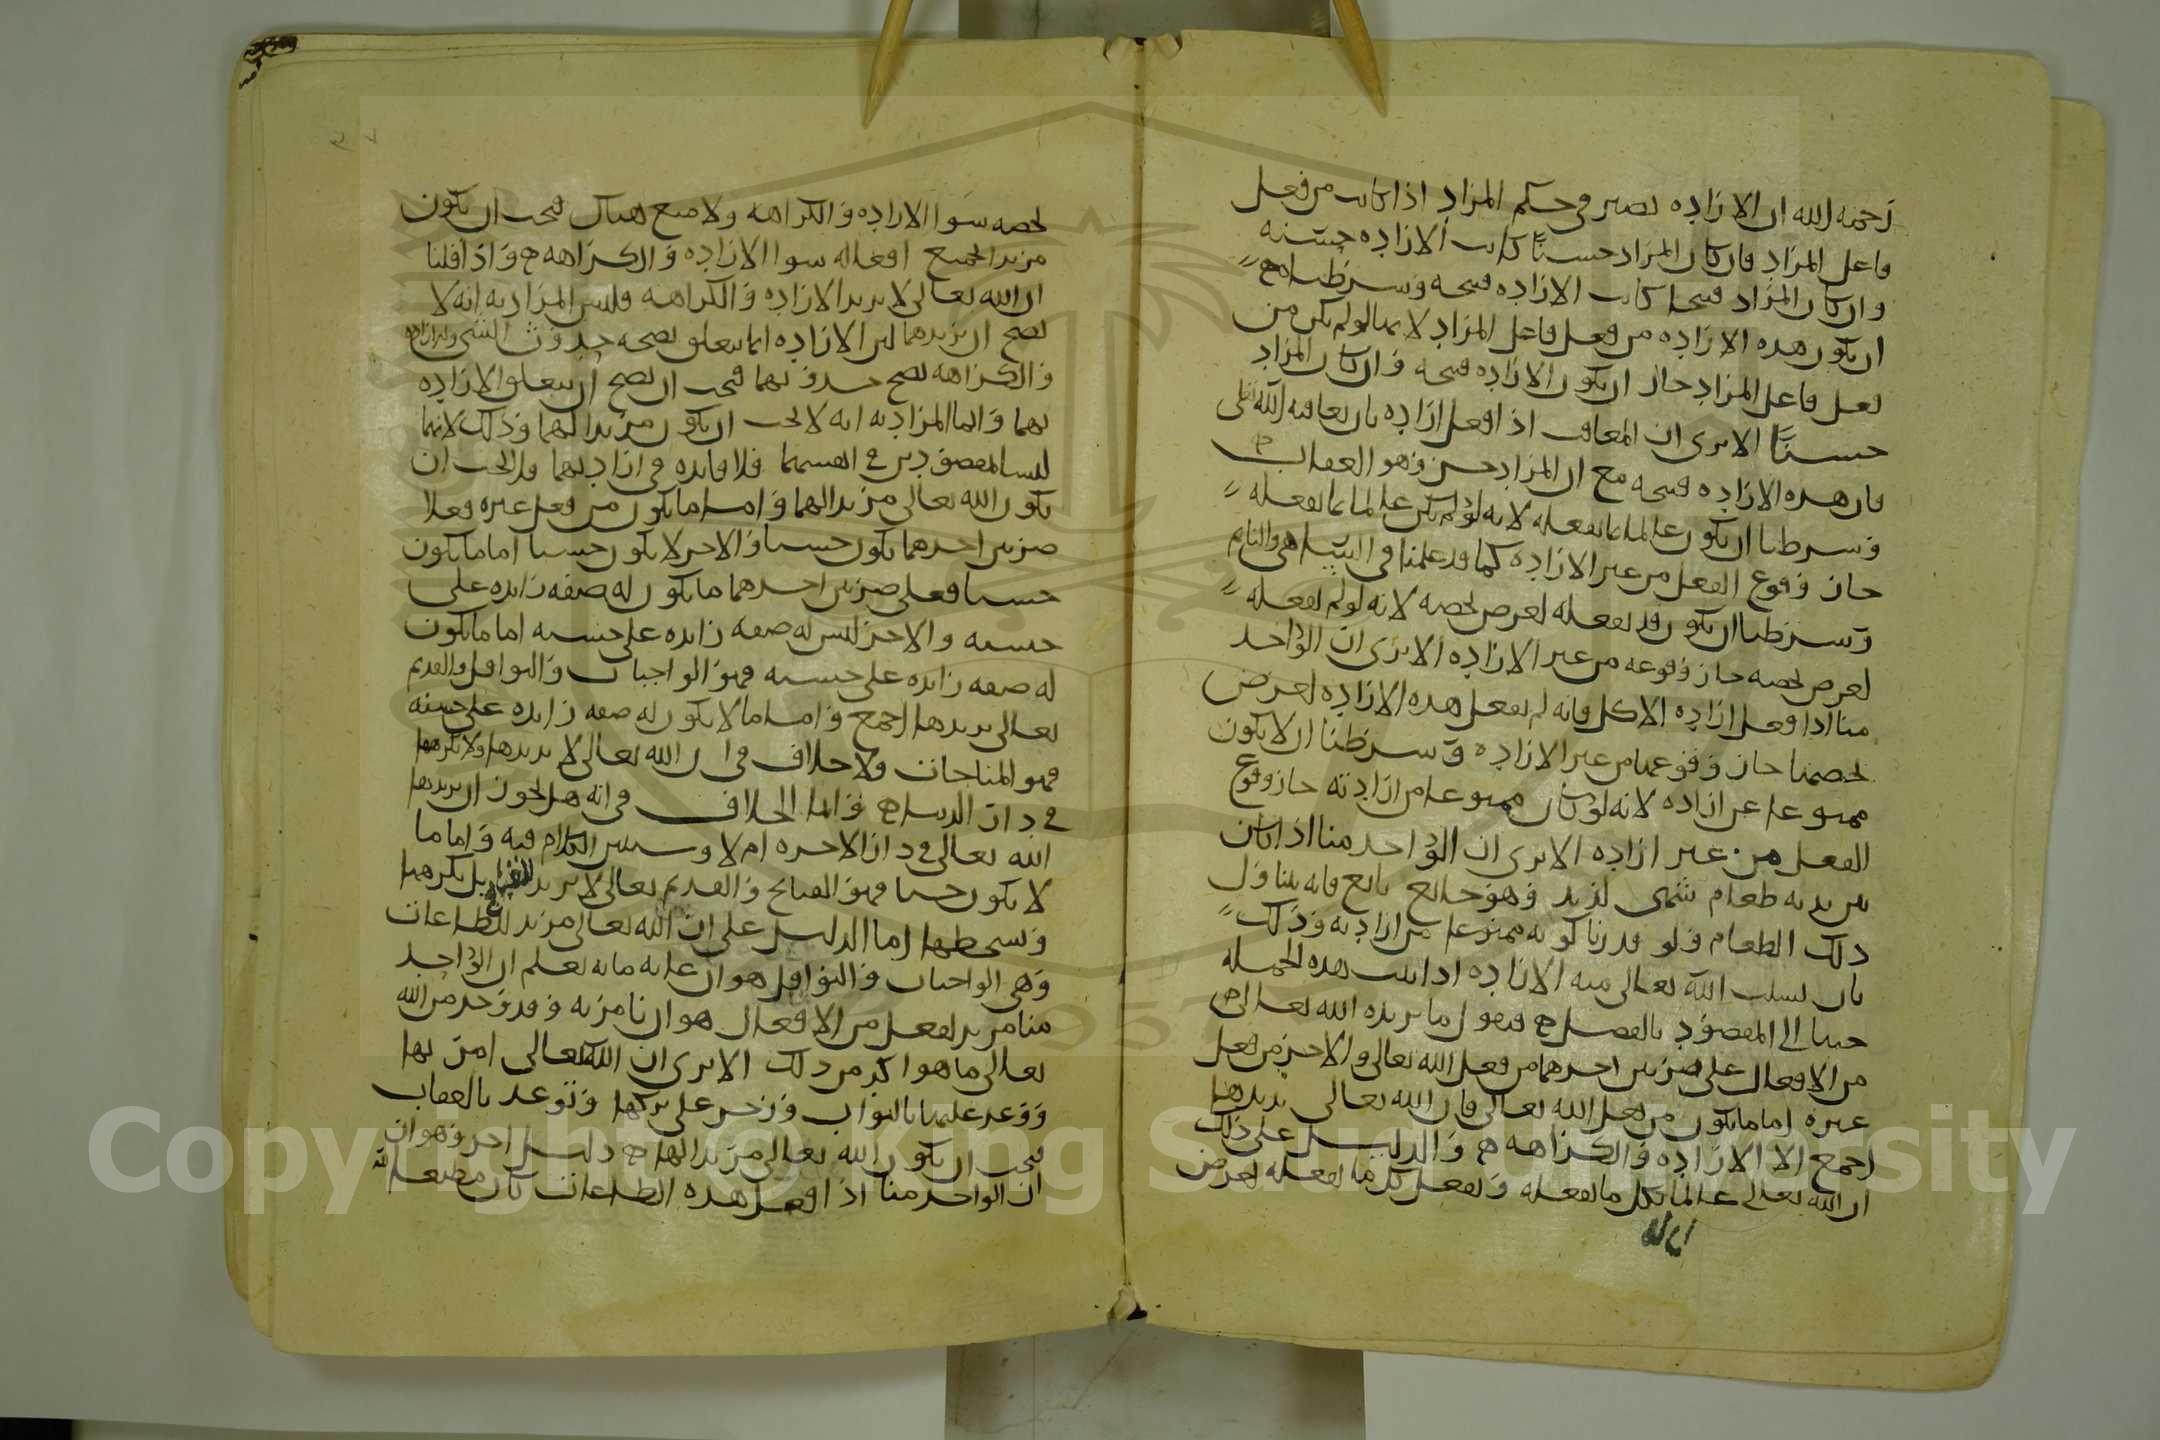 رحمه الله ان الارادة تصير في حكم المراد اذا كانت من فعل
فاعل المراد فان كان المراد حسنًا كانت الارادة حسنه
وان كان المراد قبيحا كانت الارادة قبيحه وشرطنا
ان تكون هذه الارادة من فعل فاعل المراد لانها لو لم تكن من
فعل فاعل المراد جاز ان تكون الارادة قبيحه وان كان المراد
حسنًا الا ترى ان المعاقب اذا فعل ارادة بان يعاقبه الله تعلى
فان هذه الارادة قبيحه مع ان المراد حسن وهو العقاب
وشرطنا ان يكون عالما بما يفعله لانه لو لم يكن عالما بما يفعله
جاز وقوع الفعل من غير الارادة كما قد علمنا في الساهي والنايم
وشرطنا ان يكون قد يفعله لغرض يخصه لانه لو لم يفعله
لغرض يخصه جاز وقوعه من غير الارادة الا ترى ان الواحد
منا اذا فعل ارادة الاكل فانه لم يفعل هذه الارادة لغرض
يخصها جاز وقوعها من غير الارادة وشرطنا ان لا يكون
ممنوعا عن ارادة لانه لو كان ممنوعا من ارادته جاز وقوع
الفعل من غير ارادة الا ترى ان الواحد منا اذا كان
بين يديه طعام شهي لذيذ وهو جائع بانه يتناول
ذلك الطعام ولو قدرنا كونه ممنوعا من ارادته وذلك
بان يسلب الله تعالى منه الارادة اذا ثبت هذه الجملة
جينا الى المقصود بالفصل فنقول ما يريده الله تعالى
من الافعال على ضربين احدهما من فعل الله تعالى والاخر من فعل
غيره اما ما يكون من فعل الله تعالى فان الله تعالى يريدها
اجمع الا الارادة والكراهه والدليل على ذلك
ان الله تعالى عالما بكل ما يفعله ويفعل كل ما يفعله لغرض
يخصه سوا الارادة والكراهه ولا منع هناك فيجب ان يكون
مريدا لجميع افعاله سوا الارادة والكراهه واذا قلنا
ان الله تعالى لا يريد الارادة والكراهه فليس المراد به انه لا
يصح ان يريدهما لان الارادة انما يتعلق بصحه حدوث الشي والارادة
والكراهه يصح حدوثهما فيجب ان يصح ان يتعلق الارادة
بهما وانما المراد به انه لا يجب ان يكون مريدا لهما وذلك لانهما
ليسا مقصودين في انفسهما فلا فايدة في ارادتهما فلا يجب ان
يكون الله تعالى مريدا لهما واما ما يكون من فعل غيره فعلا
ضربين احدهما يكون حسنا والاخر لا يكون حسنا اما ما يكون
حسنا فعلى ضربين احدهما ما يكون له صفه زايدة على
حسنه والاخر ليس له صفه زايدة على حسنه اما ما يكون
له صفه زايدة على حسنه فهو الواجبات والنوافل والقديم
تعالى يريدها اجمع واما ما لا يكون له صفه زايدة على حسنه
فهو المباحات ولا خلاف في ان الله تعالى لا يريدها ولا يكرهها
في دار الدنيا وانما الخلاف في انه هل يجوز ان يريدها
الله تعالى في دار الاخرة ام لا وسنبين الكلام فيه واما ما
لا يكون حسنا فهو القبائح والقديم تعالى لا يريد بل يكرهها
ويسخطها اما الدليل على ان الله تعالى مريد للطاعات
وهي الواجبات والنوافل هو ان غاية ما به يعلم ان الواحد
منا مريد لفعل من الافعال هو ان يامر به وقد وجد من الله
تعالى ما هو اكد من ذلك الا ترى ان الله تعالى امر بها
ووعد عليها بالثواب وزجر على تركها وتوعد بالعقاب
فيجب ان يكون الله تعالى مريدا لها دليل اخر وهو ان
ان الواحد منا اذا فعل هذه الطاعات كان مطيعا لله